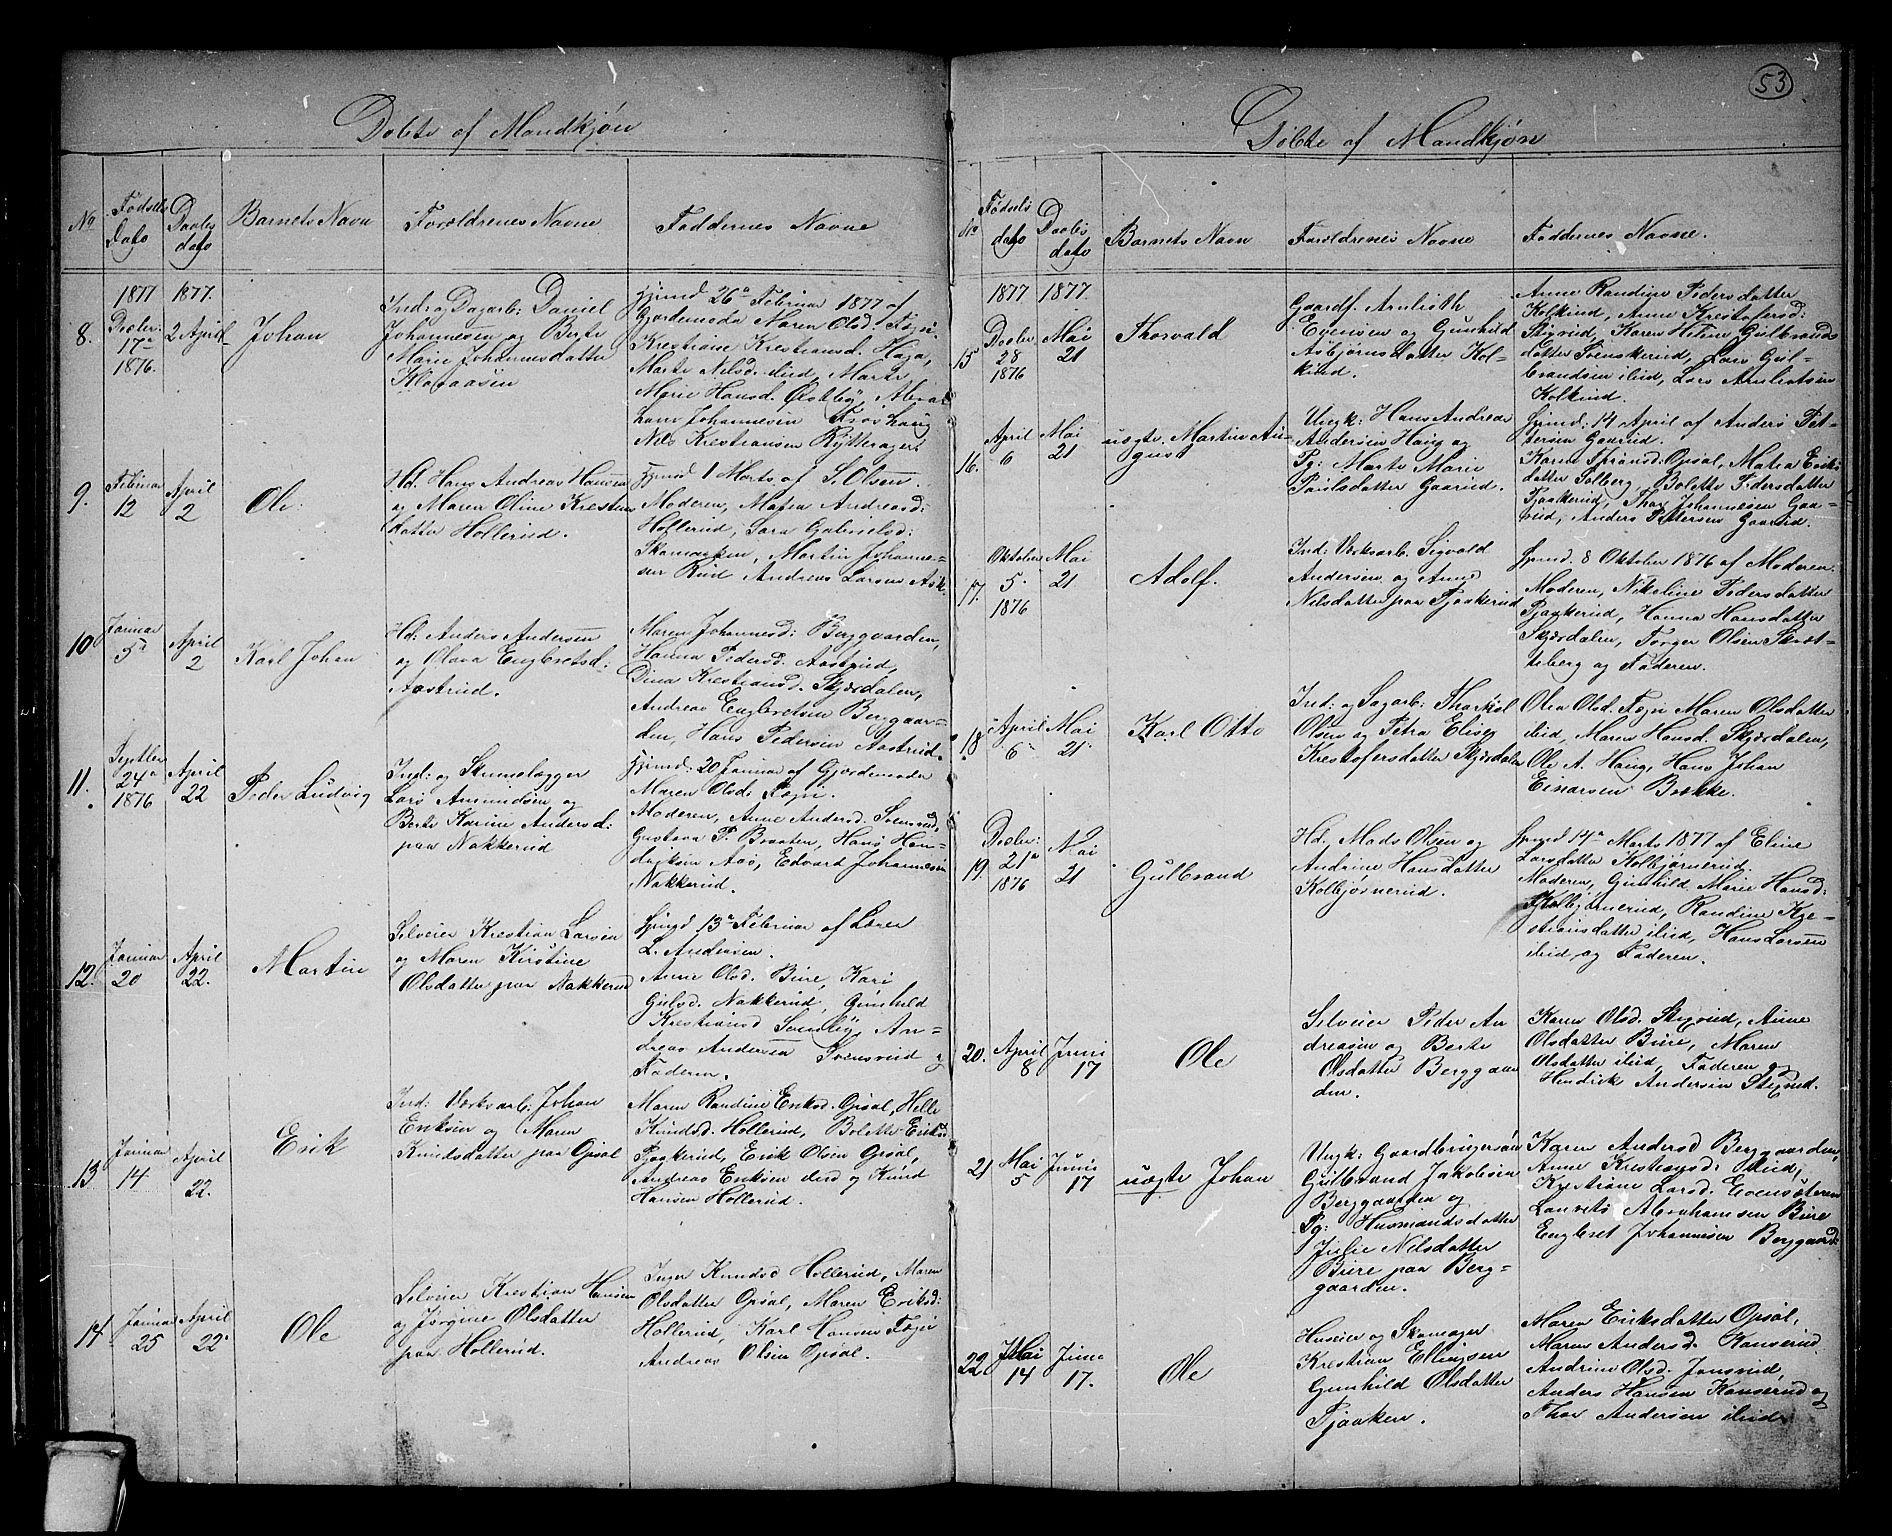 53
Døbte af Mandkjøn
No
Fødsels
Dato
Daabs
dato
Barnets Navn
Forældrenes Navne
Faddernes Navne
1877
1877.
8.
Decbr:
17de
1876.
2 April
Johan
Ind: og Dagarb: Daniel
Johannesen og Berte
Marie Johannesdatter
Klopaasen
Hjmd. 26de Februar 1877 af
Gjordemoda Maren Olsd. Fægri
Krestiane Krestiansd. Haga,
Marte Nilsd. ibid, Marte
Marie Hansd. Østbÿ, Abra-
ham Johannesen Froshaug
Nils Krestiansen Rytterager.
9.
Februar
12
April
2
Ole.
Hd. Hans Andreas Hansen
og Maren Oline Krestens
datter Hollerud.
Hjmd 1 Marts af S. Olsen.
Moderen, Matea Andreasd:
Hollerud, Sara Gabrielsd:
Skamarken, Martin Johanne-
sen Rud Andreas Larsen Ask.
10
Januar
5
April
2
Karl Johan
Hd: Anders Andersen
og Olava Engebretsd:
Aastrud.
Maren Johannesd: Berggaarden,
Hanna Pedersd: Aastrud,
Dina Krestiansd. Skjærdalen,
Andreas Engebretsen Berggaar-
den, Hans Pedersen Aastrud.
11.
Septbr
24de
1876
April
22
Peder Ludvig
Ind: og Stenelægger
Lars Amundsen og
Berte Karine Andersd:
paa Nakkerud
Hjmd: 20 Januar af Gjordemoder
Maren Olsd: Fægri.
Moderen, Anne Andersd. Svensrud,
Gustava P. Braaten, Hans Hen-
driksen Aas, Edvard Johannesen
Nakkerud.
12.
Januar
20
April
22.
Martin
Selveier Krestian Larsen
og Maren Kirstine
Olsdatter paa Nakkerud
Hjmd 13de Februar af Lærer
L. Andersen.
Anne Olsd. Bure, Kari
Gulsd. Nakkerud, Gunhild
Krestiansd Sønsteby, An-
dreas Andersen Svensrud og
Faderen.
13
Januar
14
April
22.
Erik
Ind: Værksarb: Johan
Eriksen og Maren
Knudsdatter paa Opsal
Maren Randine Eriksd. Opsal, Helle
Knudsd. Hollerud, Bolette Eriksd
Pjaakerud, Erik Olsen Opsal,
Andreas Eriksen ibid og Knud
Hansen Hollerud.
14.
Januar
25
April
22
Ole
Selveier Krestian Hansen
og Jørgine Olsdatter
paa Hollerud.
Inger Knudsd Hollerud, Maren
Olsdatter Opsal, Maren Eriksd:
Hollerud, Karl Hansen Fægri
Andreas Olsen Opsal.
Døbte af Mandkjøn
No
Fødsels
dato
Daabs
dato
Barnets Navn
Forældrenes Navne
Faddernes Navne.
1877
1877.
15
Decbr
28
1876
Mai
21
Thorvald
Gaardf. Arnlioth
Evensen og Gunhild
Asbjørnsdatter Kol-
kind.
Anne Randine Pedersdatter
Kolkind, Anne Krestofersd:
Stigsrud, Karen Helene Gulbrands
datter Svenskerud, Lars Gul-
brandsen ibid, Lars Arnliotsen
Kolkind.
16.
April
6
Mai
21
uægte. Martin Au-
gust
Ungk: Hans Andreas
Andersen Haug og
Pg: Marte Marie
Paulsdatter Gaarud.
Hjmd: 14 April af Anders Pet-
tersen Gaarud.
Karen Fransd: Opsal, Matea Eriks
datter Solberg, Bolette Pedersdatter
Pjaakerud, Thor Johannesen Gaa-
rud, Anders Pettersen Gaarud.
17.
Oktober
5.
1876
Mai
21
Adolf.
Ind: Værksarb. Sigvald
Andersen og Anne
Nilsdatter paa Pjaakerud
Hjmd. 8 Oktober 1876 af Moderen.
Moderen, Nikoline Pedersdatter
Pjaakerud, Hanna Hansdatter
Skjærdalen, Torger Olsen Skræt-
teberg og Faderen.
18.
April
6
Mai
21
Karl Otto
Ind: og Sagarb: Tharkel
Olsen og Petra Elise
Krestofersdatter Skjærdalen
Olea Olsd. Fægri Maren Olsdatter
ibid, Maren Hansd. Skjærdalen,
Ole A. Haug, Hans Johan
Einarsen Brække.
19
Decbr:
21de
1876
Mai
21
Gulbrand
Hd. Mads Olsen og
Andrine Hansdatter
Kolbjørnerud.
Hjmd 14de Marts 1877 af Eline
Larsdatter Kolbjørnerud.
Moderen, Gunhild Marie Hansd:
Kolbjørnerud, Randine Kre-
stiansdatter ibid, Hans Larsen
ibid og Faderen.
20.
April
8
Juni
17
Ole
Selveier Peder An
dreasen og Berte
Olsdatter Berggaar
den.
Karen Olsd. Stigsrud, Anne
Olsdatter Bure, Maren
Olsdatter ibid, Faderen og
Hendrik Andersen Stigsrud.
21
Mai
5
Juni
17
uægte Johan
Ungk: Gaardbrugersøn
Gulbrand Jakobsen
Berggaarden og
Pg: Husmandsdatter
Julie Nilsdatter
Bure paa Berg-
gaarden.
Karen Andersd Berggaarden,
Anne Krestiansd: ibid,
Kristiane Larsd. Evensæteren
Laurits Abrahamsen Bure
Engebret Johannesen Berggaard:
22
Mai
14
Juni
17.
Ole
Huseier og Skomager
Krestian Ellingsen
Gunhild Olsdatter
Pjaaken.
Maren Eriksdatter Opsal,
Maren Andersd. Kanserud
Andrine Olsd. Jonsrud,
Anders Hansen Kanserud og
Thor Andersen ibid.